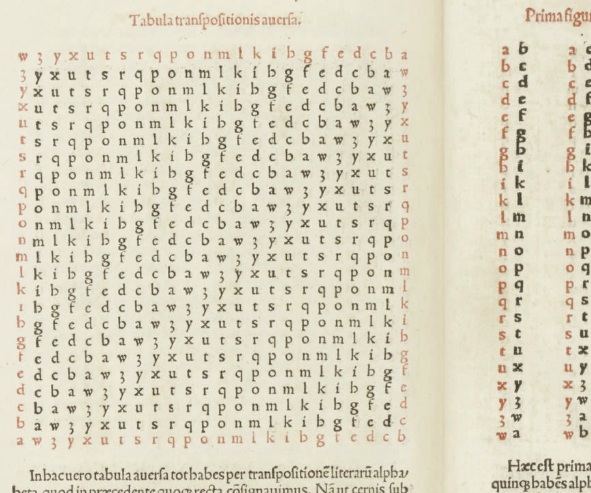 Tabula transpositionis auersa.
w z y x u t s r q p o n m l k i h g f e d c b a
z y x u t s r q p o n m l k i h g f e d c b a w
y x u t s r q p o n m l k i h g f e d c b a w z
x u t s r q p o n m l k i h g f e d c b a w z y
u t s r q p o n m l k i h g f e d c b a w z y x
t s r q p o n m l k i h g f e d c b a w z y x u
s r q p o n m l k i h g f e d c b a w z y x u t
r q p o n m l k i h g f e d c b a w z y x u t s
q p o n m l k i h g f e d c b a w z y x u t s r
p o n m l k i h g f e d c b a w z y x u t s r q
o n m l k i h g f e d c b a w z y x u t s r q p
n m l k i h g f e d c b a w z y x u t s r q p o
m l k i h g f e d c b a w z y x u t s r q p o n
l k i h g f e d c b a w z y x u t s r q p o n m
k i h g f e d c b a w z y x u t s r q p o n m l
i h g f e d c b a w z y x u t s r q p o n m l k
h g f e d c b a w z y x u t s r q p o n m l k i
g f e d c b a w z y x u t s r q p o n m l k i h
f e d c b a w z y x u t s r q p o n m l k i h g
e d c b a w z y x u t s r q p o n m l k i h g f
d c b a w z y x u t s r q p o n m l k i h g f e
c b a w z y x u t s r q p o n m l k i h g f e d
b a w z y x u t s r q p o n m l k i h g f e d c
a w z y x u t s r q p o n m l k i h g f e d c b
In hac uero tabula auersa tot habes per transpositionē literarū alpha/
beta, quod in præcedente quoq; recta cōsignauimus. Nā ut cernis sub
Prima figur
a b a c
b c b d
c d c e
d e d f
e f e g
f g f h
g h g i
h i h k
i k i l
k l k m
l m l n
m n m o
n o n p
o p o q
p q p r
q r q s
r s r t
s t s u
t u t x
u x u y
x y x z
y z y w
z w z a
w a w b
Hæc est prima
quinq; habes alph